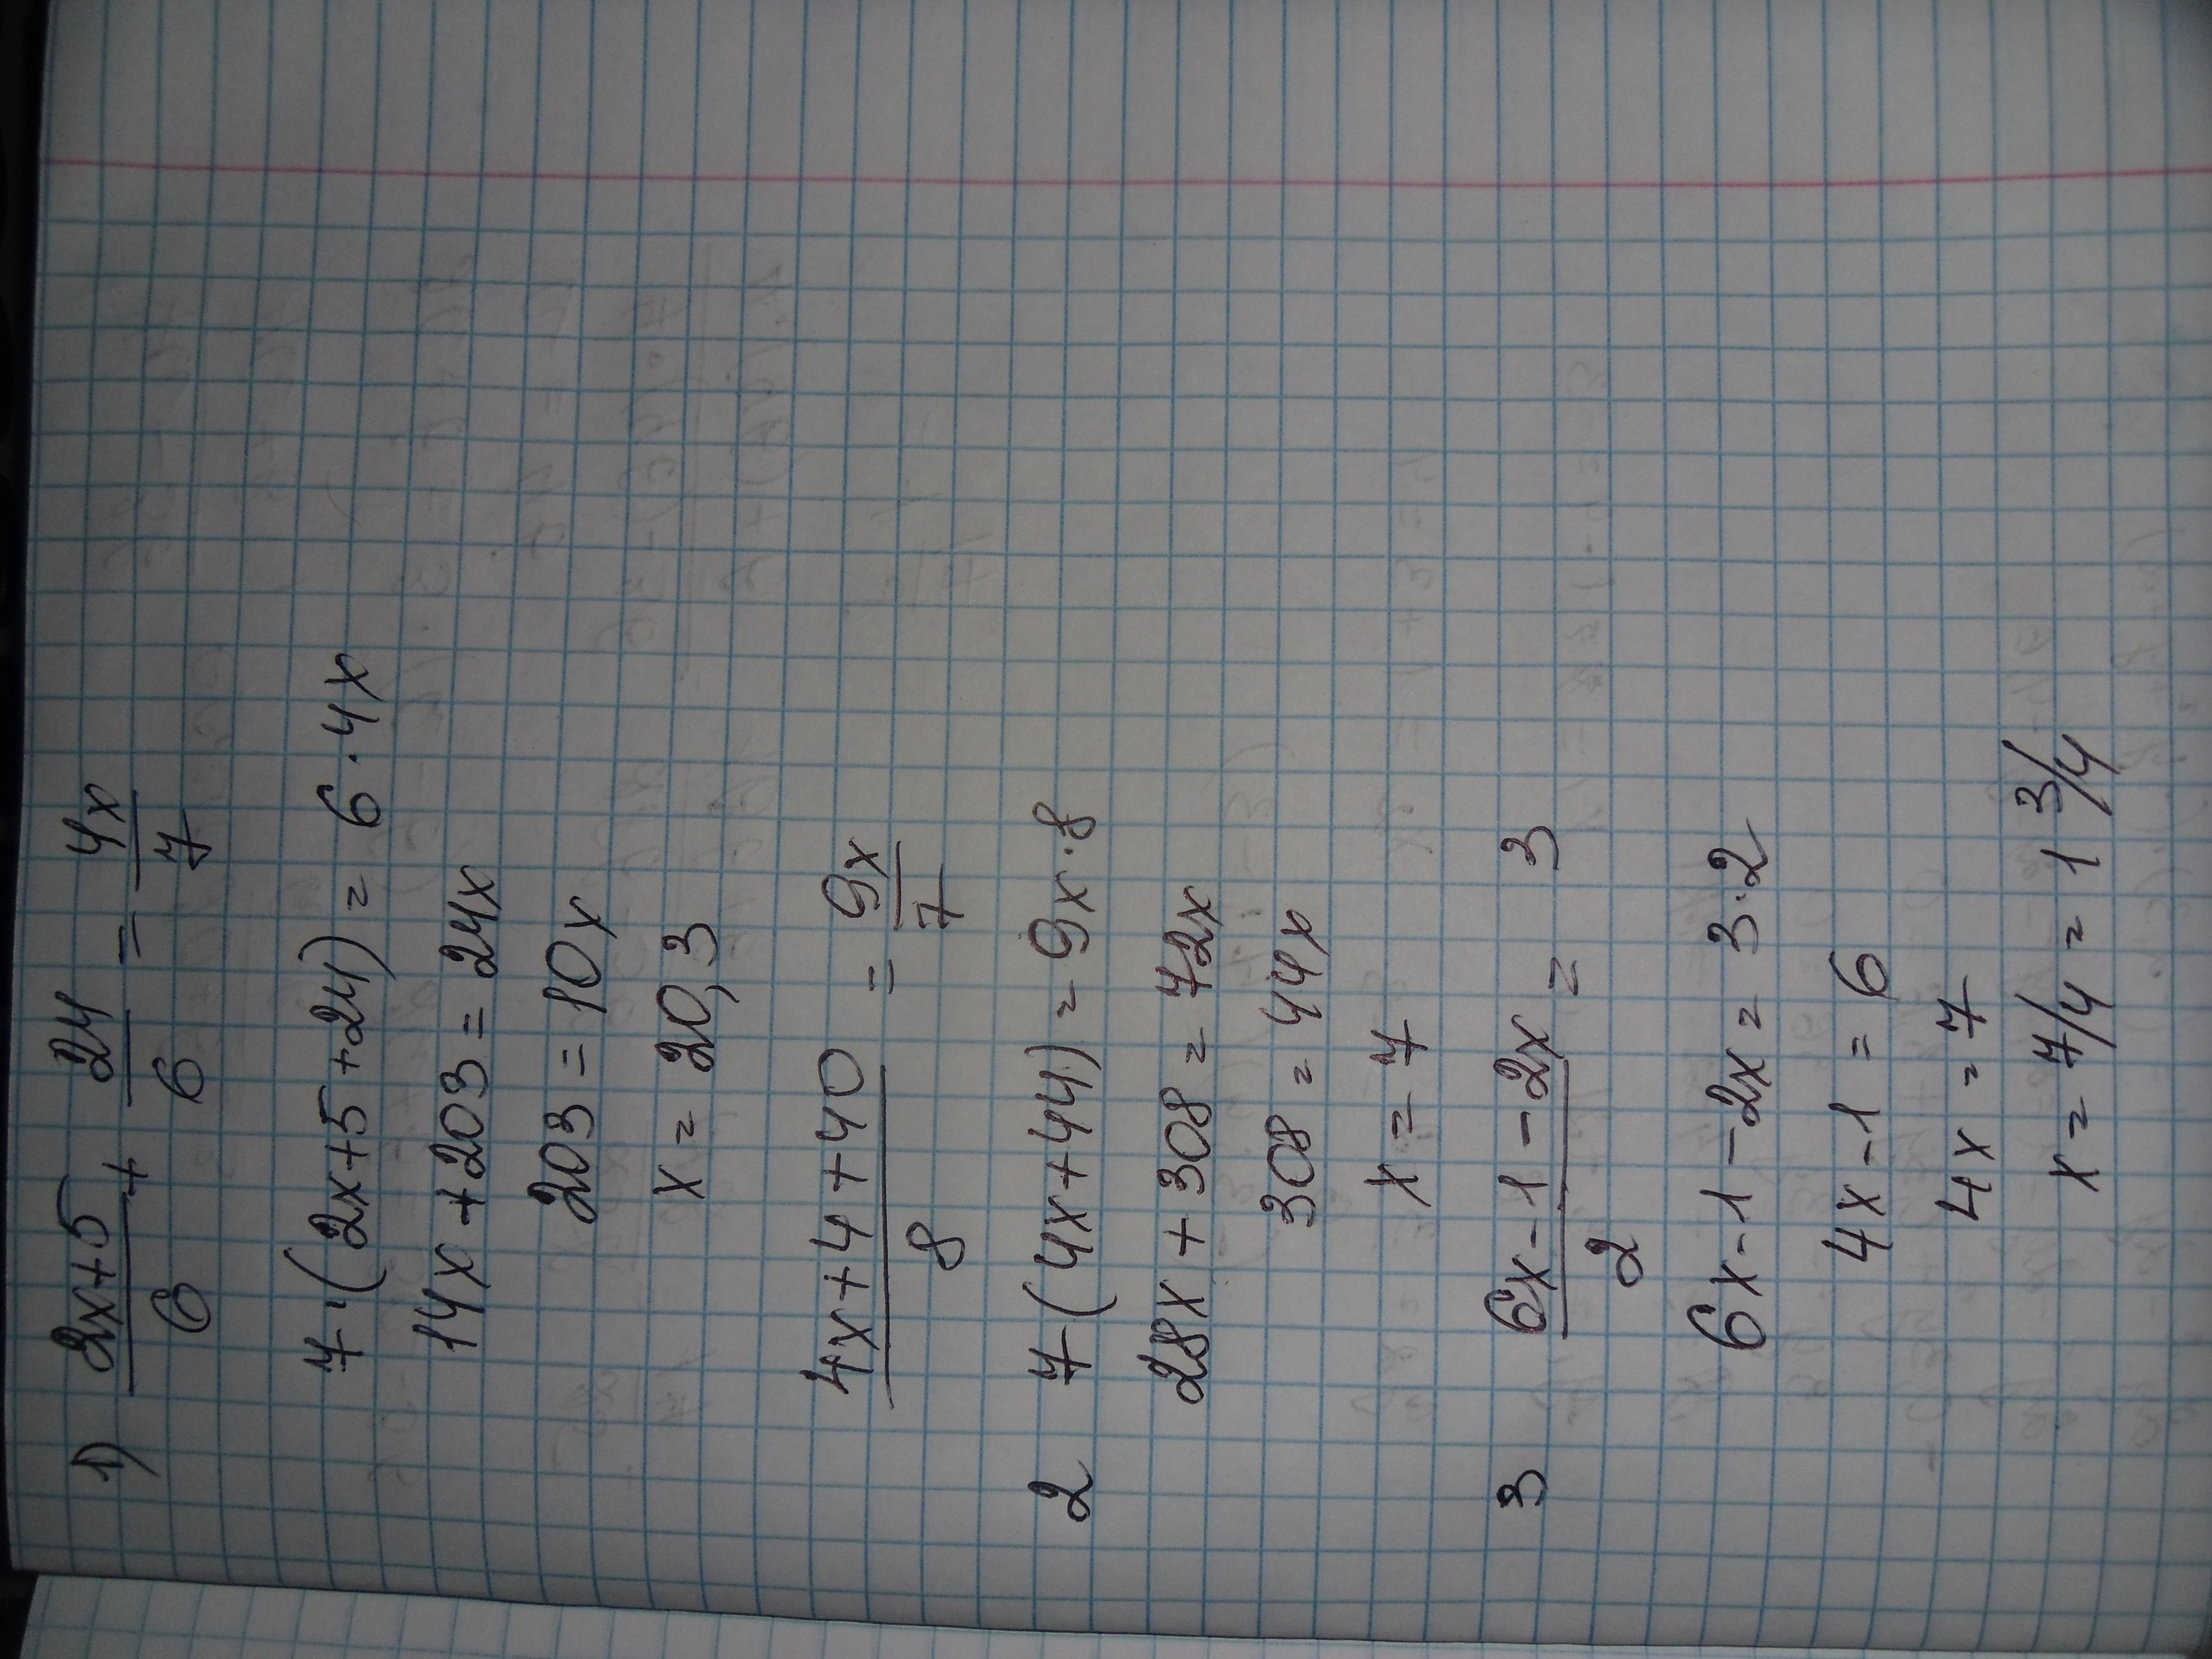 1) (2x+5)/6 + 24/6 = 4x/7
7·(2x+5+24) = 6·4x
14x+203=24x
203=10x
x= 20,3
(4x+4+40)/8 = 9x/7
2 7(4x+44)=9x·8
28x+308=72x
308=44x
x=7
3 (6x-1-2x)/2 = 3
6x-1-2x=3·2
4x-1=6
4x=7
x=7/4=1 3/4